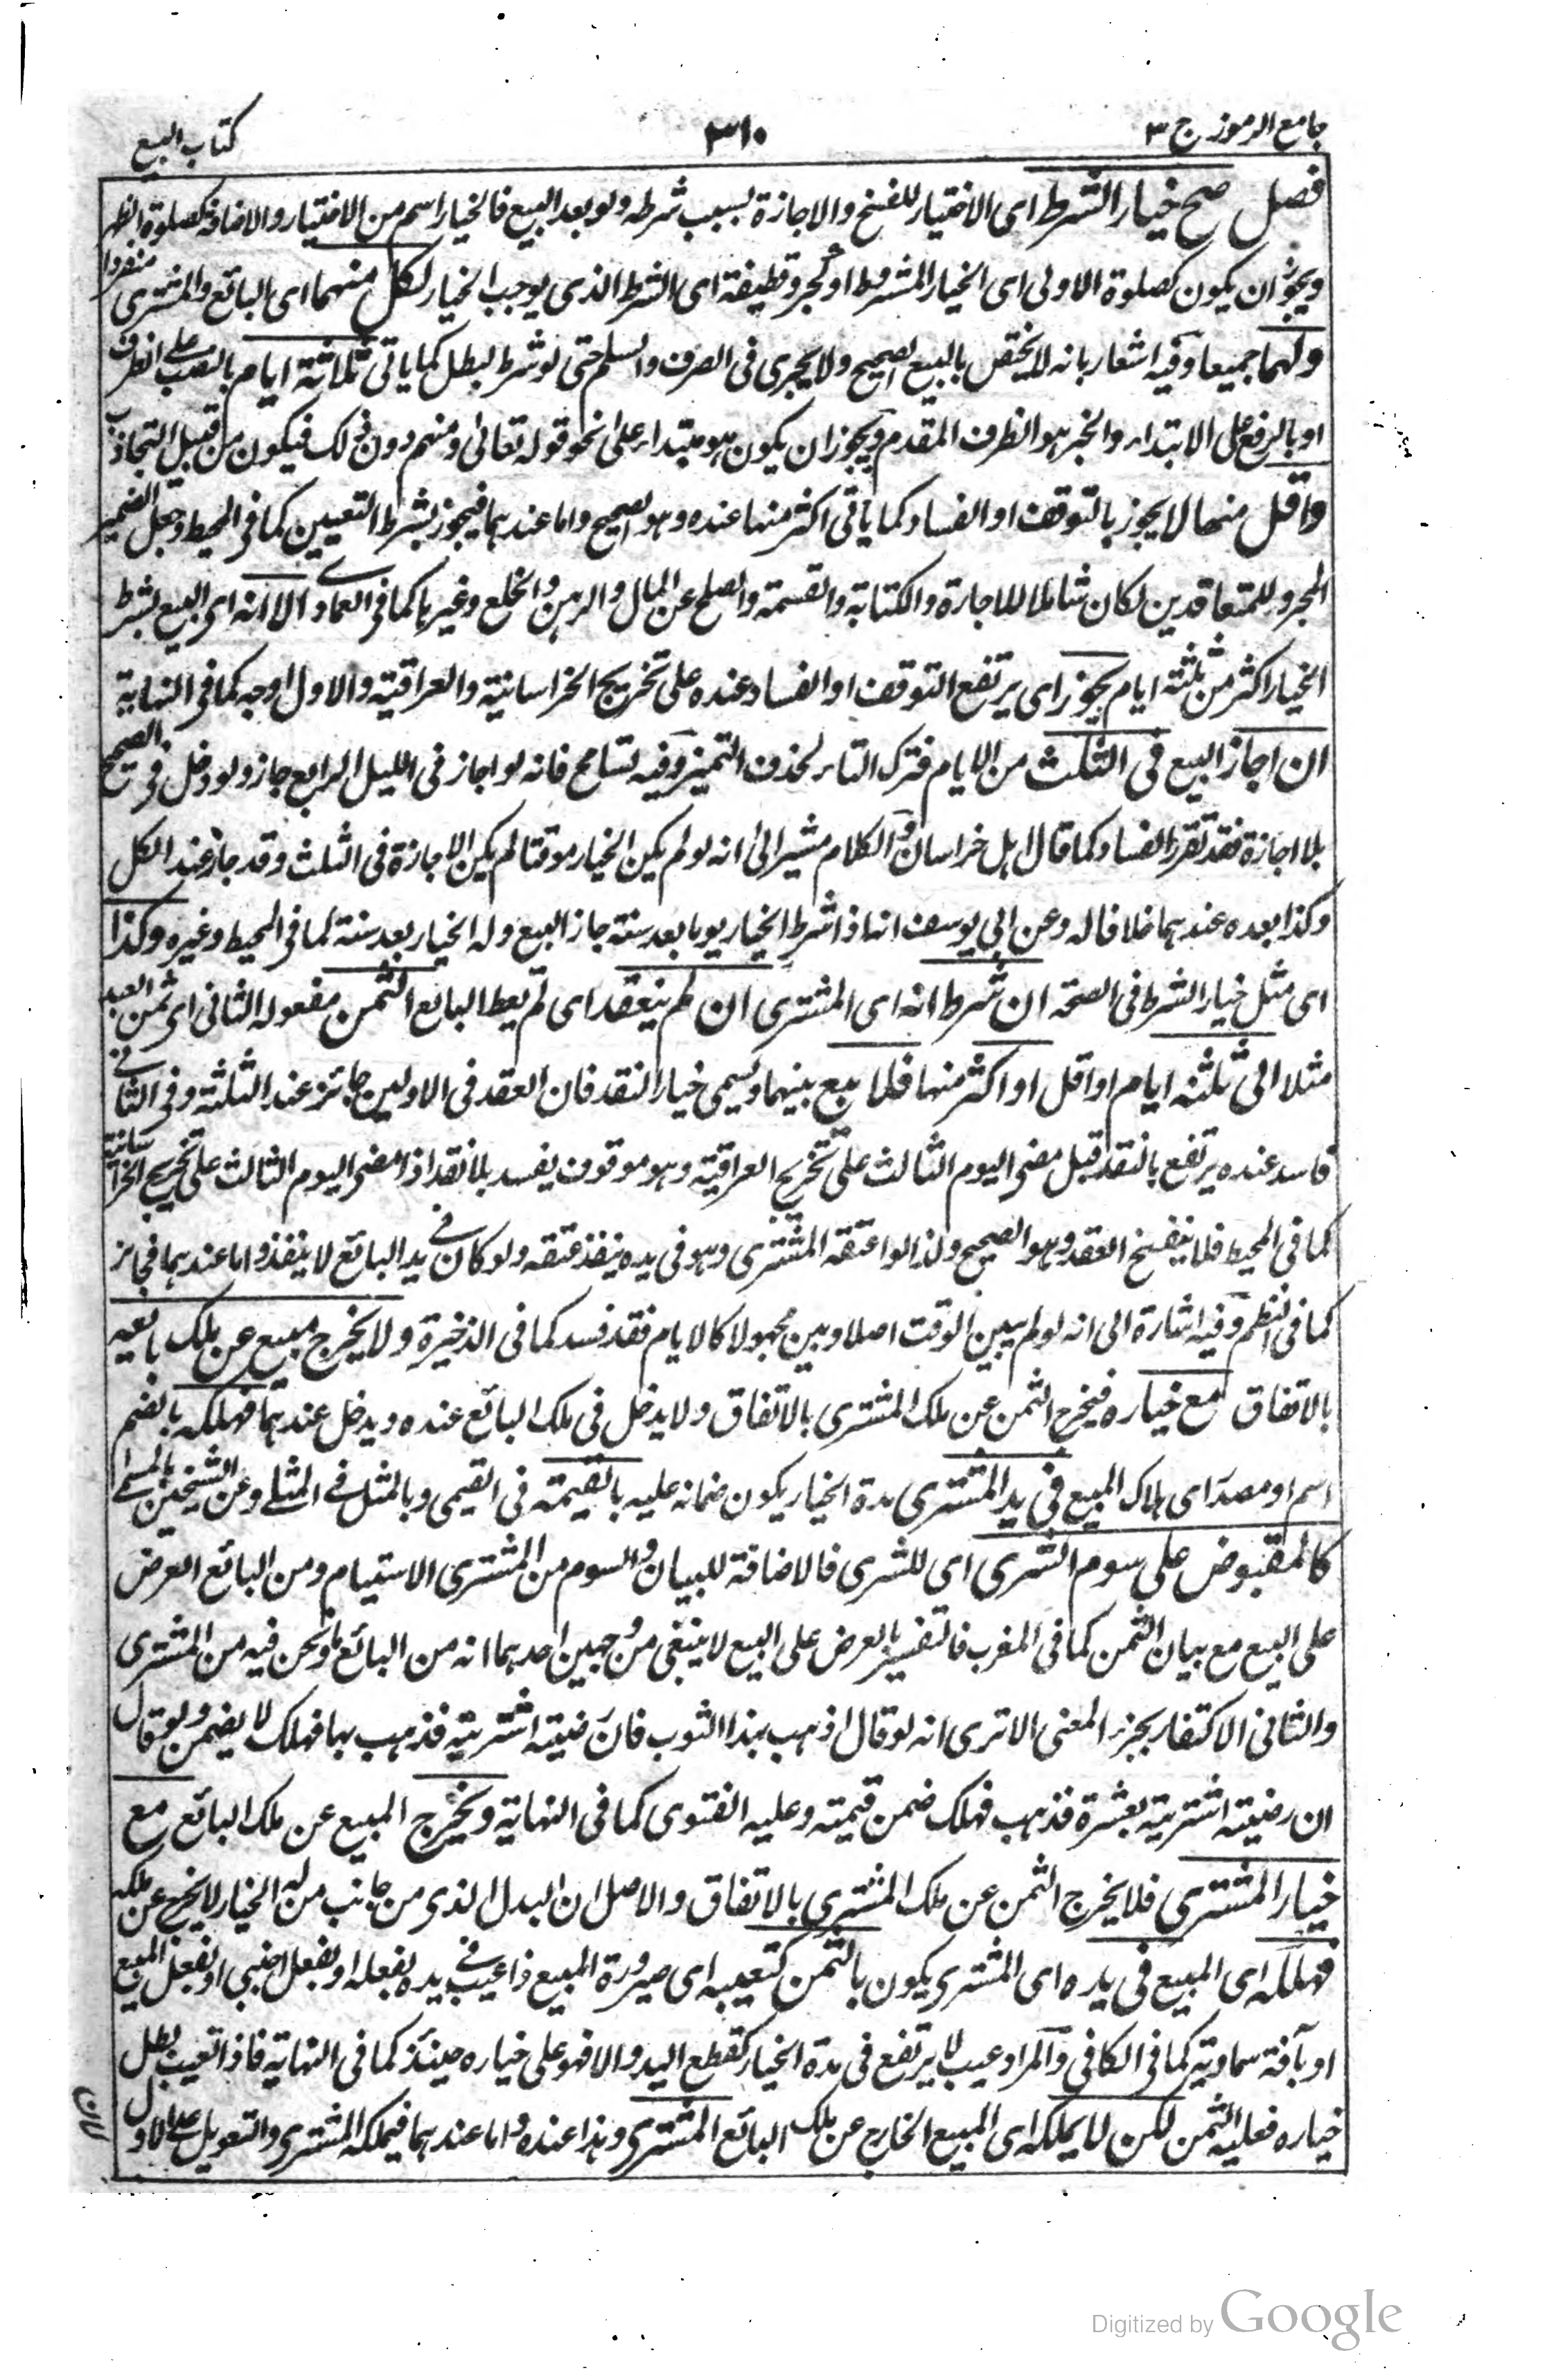 جامع الرموز ج ٣
٣١٠
كتاب البيع
فصل صح خيار الشرط اى الاختيار للفسخ والاجازة بسبب شرطه ولو بعد البيع فالخيار اسم من الاختيار والاضافة كصلوة الظهر
ويجوز ان يكون كصلوة الاولى اى الخيار المشروط او كجرد قطيفة اى الشرط الذى يوجب الخيار لكل منهما اى البائع والمشترى منفردا
ولهما جميعا وفيه اشعار بانه لا يختص بالبيع الصحيح ولا يجرى فى الصرف والسلم حتى لو شرط لبطل كما ياتى ثلاثة ايام بالنصب على الظرف
او بالرفع على الابتداء والخبر هو الظرف المقدم ويجوز ان يكون هو مبتداء على نحو قوله تعالى ومنهم دون ذلك فيكون من قبيل التجاذب
واقل منها لا يجوز بالتوقف او الفساد كما ياتى اكثر منها عنده وهو الصحيح واما عندهما فيجوز بشرط التعيين كما فى المحيط وجعل الضمير
المجرور للمتعاقدين لكان شاملا للاجارة والكتابة والقسمة والصلح عن المال والرهن والخلع وغيرها كما فى العمادى الا انه اى البيع بشرط
الخيار اكثر من ثلثة ايام يجوز اى يرتفع التوقف او الفساد عنده على تخريج الخراسانية والعراقية والاول اوجه كما فى النهاية
ان اجاز البيع فى الثلث من الايام فترك التاء لحذف التميز وفيه تسامح فانه لو اجاز فى الليل الرابع جاز ولو دخل فى الصبح
بلا اجازة فقد تقرر الفساد كما قال اهل خراسان والكلام مشير الى انه لو لم يكن الخيار موقتا لم يكن الاجازة فى الثلث وقد جاز عند الكل
وكذا بعده عندهما خلافا له وعن ابى يوسف انه اذا شرط الخيار يوما بعد سنة جاز البيع وله الخيار بعد سنة كما فى المحيط وغيره وكذا
اى مثل خيار الشرط فى الصحة ان شرط انه اى المشترى ان لم ينعقد اى لم يعط البائع الثمن مفعوله الثانى اى ثمن العبد
مثلا الى ثلثة ايام او اقل او اكثر منها فلا بيع بينهما ويسمى خيار النقد فان العقد فى الاولين جائز عند الثلثة وفى الثانى
فاسد عنده يرتفع بالنقد قبل مضى اليوم الثالث على تخريج العراقية وهو موقوف يفسد بلا نقد اذا مضى اليوم الثالث على تخريج الخراسانية
كما فى المحيط فلا ينفسخ العقد وهو الصحيح ولذا لو اعتقه المشترى وهو فى يده ينفذ عتقه ولو كان فى يد البائع لا ينفذ واما عندهما فجائز
كما فى النظم وفيه اشارة الى انه لو لم يبين الوقت اصلا وبين مجهولا كالايام فقد فسد كما فى الذخيرة ولا يخرج مبيع عن ملك بائعه
بالاتفاق مع خياره فيخرج الثمن عن ملك المشترى بالاتفاق ولا يدخل فى ملك البائع عنده ويدخل عندهما فهلكه بالضم
اسم او مصدر اى هلاك المبيع فى يد المشترى مدة الخيار يكون ضمانه عليه بالقيمة فى القيمى وبالمثل فى المثلى وعن الشيخين بالمسمى
كالمقبوض على سوم الشرى اى للشرى فالاضافة للبيان والسوم من المشترى الاستيام ومن البائع العرض
على البيع مع بيان الثمن كما فى المغرب فالتفسير بالعرض على البيع لا ينبغى من وجهين احدهما انه من البائع ونحن فيه من المشترى
والثانى الاكتفاء بجزء المعنى الا ترى انه لو قال اذهب بهذا الثوب فان رضيته اشتريته فذهب بها فهلك لا يضمن ولو قال
ان رضيته اشتريته بعشرة فذهب فهلك ضمن قيمته وعليه الفتوى كما فى النهاية ويخرج المبيع عن ملك البائع مع
خيار المشترى فلا يخرج الثمن عن ملك المشترى بالاتفاق والاصل ان البدل الذى من جانب من له الخيار لا يخرج عن ملكه
فهلكه اى المبيع فى يده اى المشترى يكون بالثمن كتعيبه اى صيرورة المبيع ذا عيب فى يده بفعله او بفعل اجنبى او بفعل المبيع
او بآفة سماوية كما فى الكافى والمراد عيب لا يرتفع فى مدة الخيار كقطع اليد والا فهو على خياره حينئذ كما فى النهاية فاذا تعيب بطل
خياره فعليه الثمن لكن لا يملكه اى المبيع الخارج عن ملك البائع المشترى وهذا عنده واما عندهما فيملكه المشترى والتعويل على الاول
لان
Digitized by Google